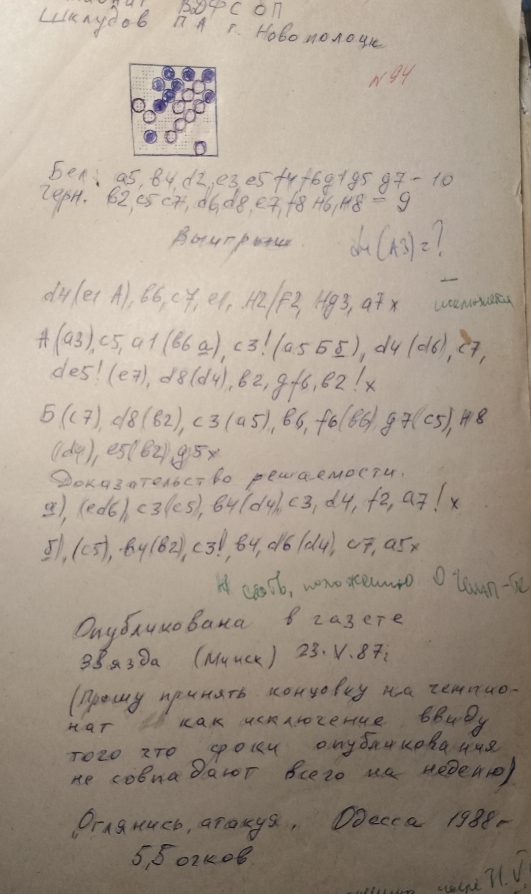 ВДФС ОП
Шклудов П А г. Новополоцк
№94
Бел: а5, в4, d2, е3, е5 f4 f6 g1 g5 g7 - 10
Черн. в2, с5 с7, d6, d8, е7, f8 н6, н8 = 9
Выигрыш d4 (А3) = ?
d4 (е1 А), в6, с7, е1, н2/F2, нg3, а7 х
А (а3), с5, а1 (в6 а), с3! (а5 Б б), d4 (d6), с7,
de5! (е7), d8 (d4), в2, gf6, в2! х
Б (с7), d8 (в2), с3 (а5), в6, f6 (в6) g7 (с5), н8
(d4), е5 (в2), g5х
Доказательство решаемости.
а), (ed6), с3 (с5), в4 (d4), с3, d4, f2, а7! х
б), (с5), в4 (в2), с3!, в4, d6 (d4), с7, а5х
положению О
Опубликована в газете
Звязда (Минск) 23.V.87г
(Прошу принять концовку на чемпио-
нат как исключение ввиду
того что сроки опубликования
не совпадают всего на неделю)
„Оглянись, атакуя. Одесса 1988г
5,5 очков